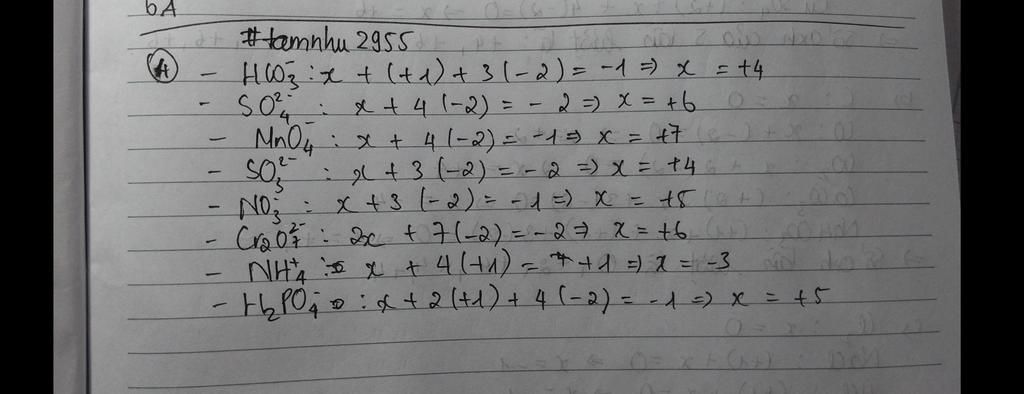 bA
#tamnhu 2955
A - HCO₃⁻ : x + (+1) + 3(-2) = -1 ⇒ x = +4
- SO₄²⁻ : x + 4(-2) = -2 ⇒ x = +6
- MnO₄⁻ : x + 4(-2) = -1 ⇒ x = +7
- SO₃²⁻ : x + 3(-2) = -2 ⇒ x = +4
- NO₃⁻ : x + 3(-2) = -1 ⇒ x = +5
- Cr₂O₇²⁻ : 2x + 7(-2) = -2 ⇒ x = +6
- NH₄⁺ : x + 4(+1) = +1 ⇒ x = -3
- H₂PO₄⁻ : x + 2(+1) + 4(-2) = -1 ⇒ x = +5